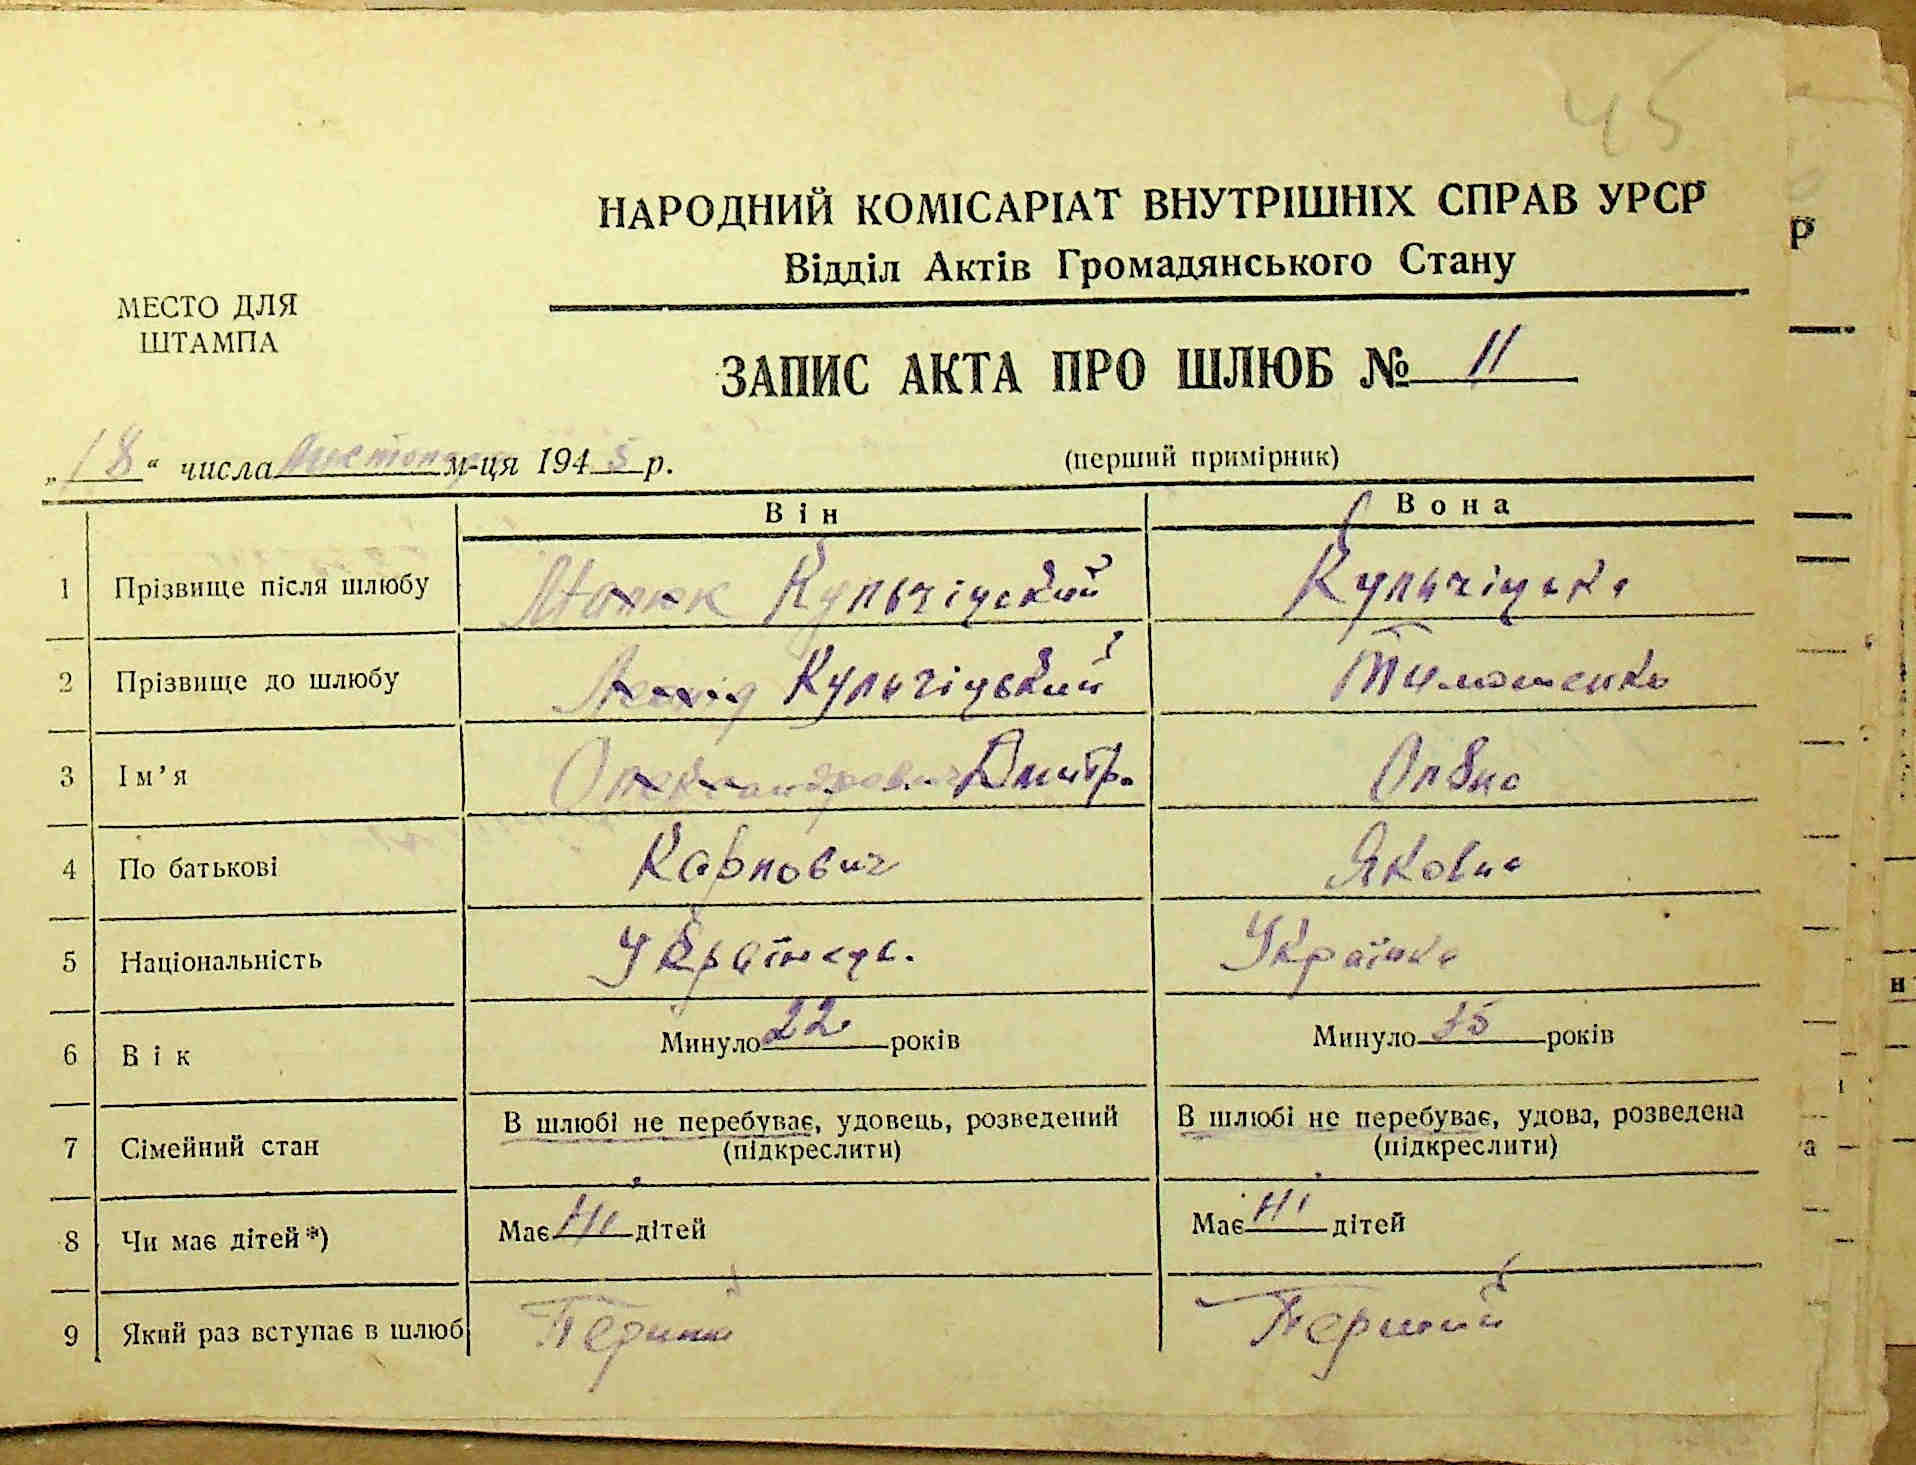 45
НАРОДНИЙ КОМІСАРІАТ ВНУТРІШНІХ СПРАВ УРСР
Відділ Актів Громадянського Стану
МЕСТО ДЛЯ
ШТАМПА
ЗАПИС АКТА ПРО ШЛЮБ № 11
„18“ числа листопада м-ця 1945 р.
(перший примірник)
Він Вона
1 Прізвище після шлюбу Кульчіцский Кульчіцька
2 Прізвище до шлюбу Кульчіцький Тимошенко
3 Ім’я Олександрович Дмитр. Ольвно
4 По батькові Карпович Яковна
5 Національність Українець. Українка
6 Вік Минуло 22 років Минуло років
7 Сімейний стан В шлюбі не перебуває, удовець, розведений (підкреслити) В шлюбі не перебуває, удова, розведена (підкреслити)
8 Чи має дітей*) Має Ні дітей Має Ні дітей
9 Який раз вступає в шлюб Перший Перший